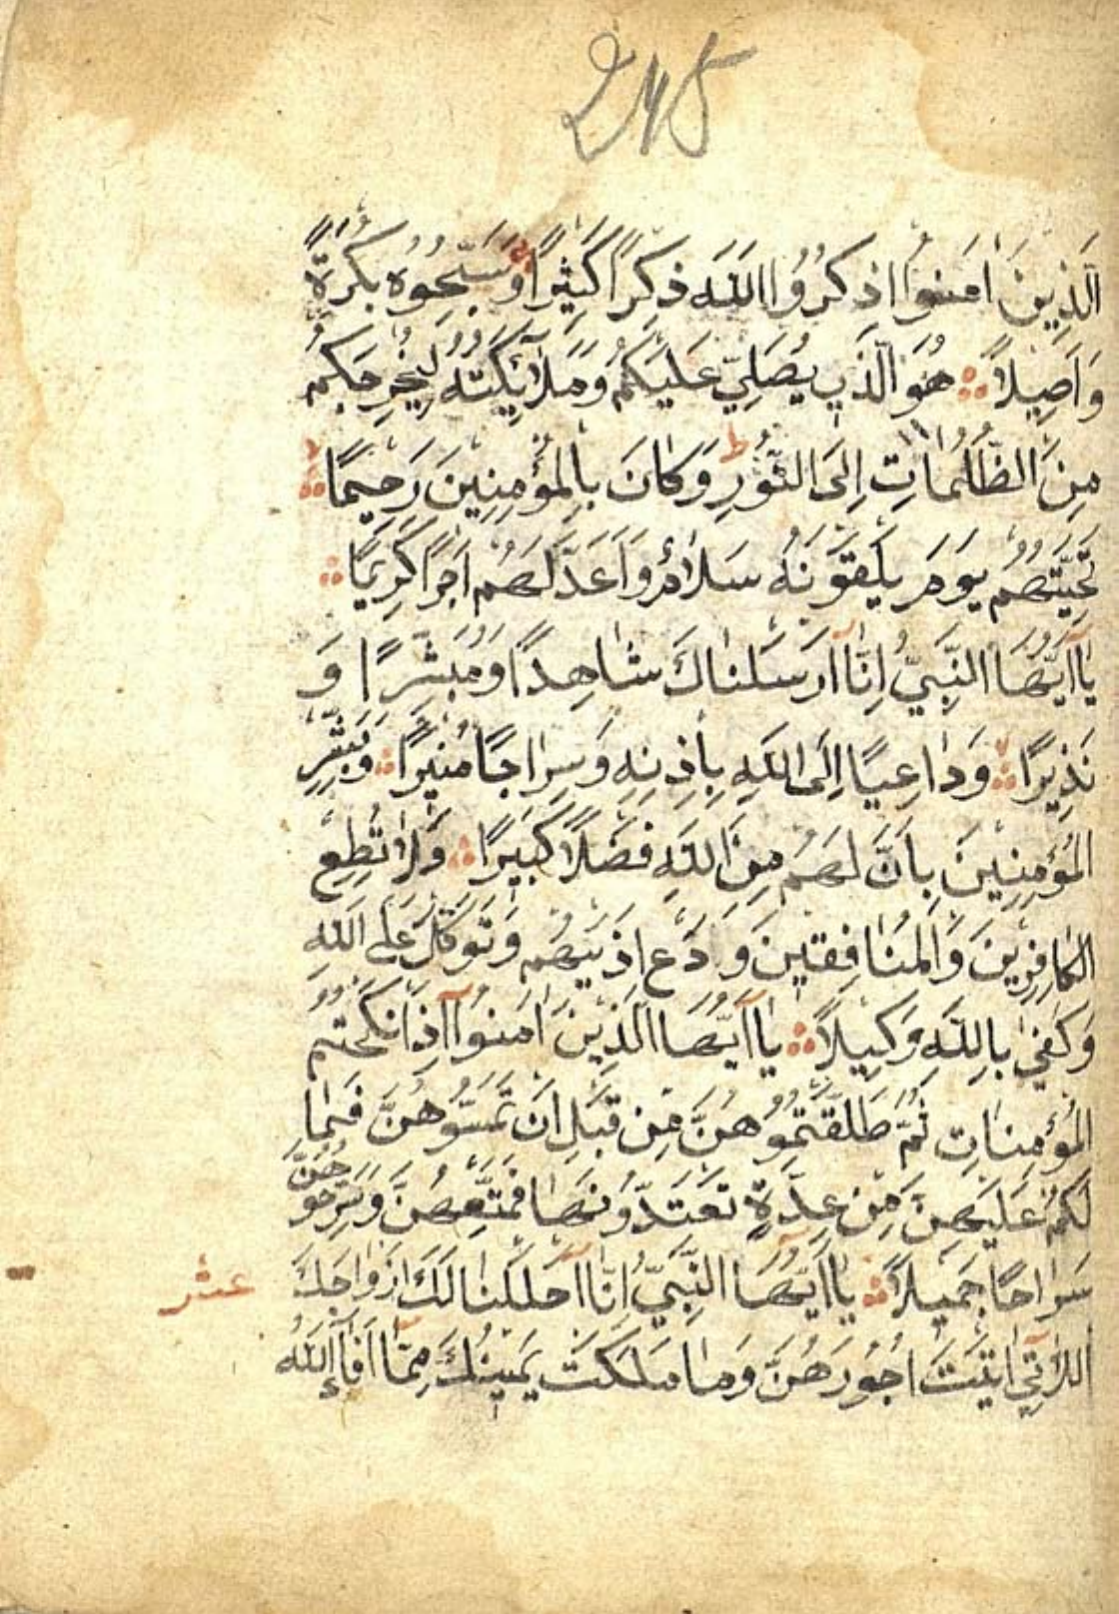 245
الَّذِينَ اٰمَنُوا اذْكُرُوا اللّٰهَ ذِكْرًا كَثِيرًا وَسَبِّحُوهُ بُكْرَةً
وَاَصِيلًا هُوَ الَّذِي يُصَلِّي عَلَيْكُمْ وَمَلَائِكَتُهُ لِيُخْرِجَكُمْ
مِنَ الظُّلُمَاتِ اِلَى النُّورِ ط وَكَانَ بِالْمُؤْمِنِينَ رَحِيمًا
تَحِيَّتُهُمْ يَوْمَ يَلْقَوْنَهُ سَلَامٌ وَاَعَدَّ لَهُمْ اَجْرًا كَرِيمًا
يَا اَيُّهَا النَّبِيُّ اِنَّا اَرْسَلْنَاكَ شَاهِدًا وَمُبَشِّرًا وَ
نَذِيرًا وَدَاعِيًا اِلَى اللّٰهِ بِاِذْنِهِ وَسِرَاجًا مُنِيرًا وَبَشِّرِ
الْمُؤْمِنِينَ بِاَنَّ لَهُمْ مِنَ اللّٰهِ فَضْلًا كَبِيرًا وَلَا تُطِعِ
الْكَافِرِينَ وَالْمُنَافِقِينَ وَدَعْ اَذٰيهُمْ وَتَوَكَّلْ عَلَى اللّٰهِ
وَكَفٰى بِاللّٰهِ وَكِيلًا يَا اَيُّهَا الَّذِينَ اٰمَنُوا اِذَا نَكَحْتُمُ
الْمُؤْمِنَاتِ ثُمَّ طَلَّقْتُمُوهُنَّ مِنْ قَبْلِ اَنْ تَمَسُّوهُنَّ فَمَا
لَكُمْ عَلَيْهِنَّ مِنْ عِدَّةٍ تَعْتَدُّونَهَا فَمَتِّعُوهُنَّ وَسَرِّحُوهُنَّ
سَرَاحًا جَمِيلًا يَا اَيُّهَا النَّبِيُّ اِنَّا اَحْلَلْنَا لَكَ اَزْوَاجَكَ عشر
اللَّاتِي اٰتَيْتَ اُجُورَهُنَّ وَمَا مَلَكَتْ يَمِينُكَ مِمَّا اَفَاءَ اللّٰهُ